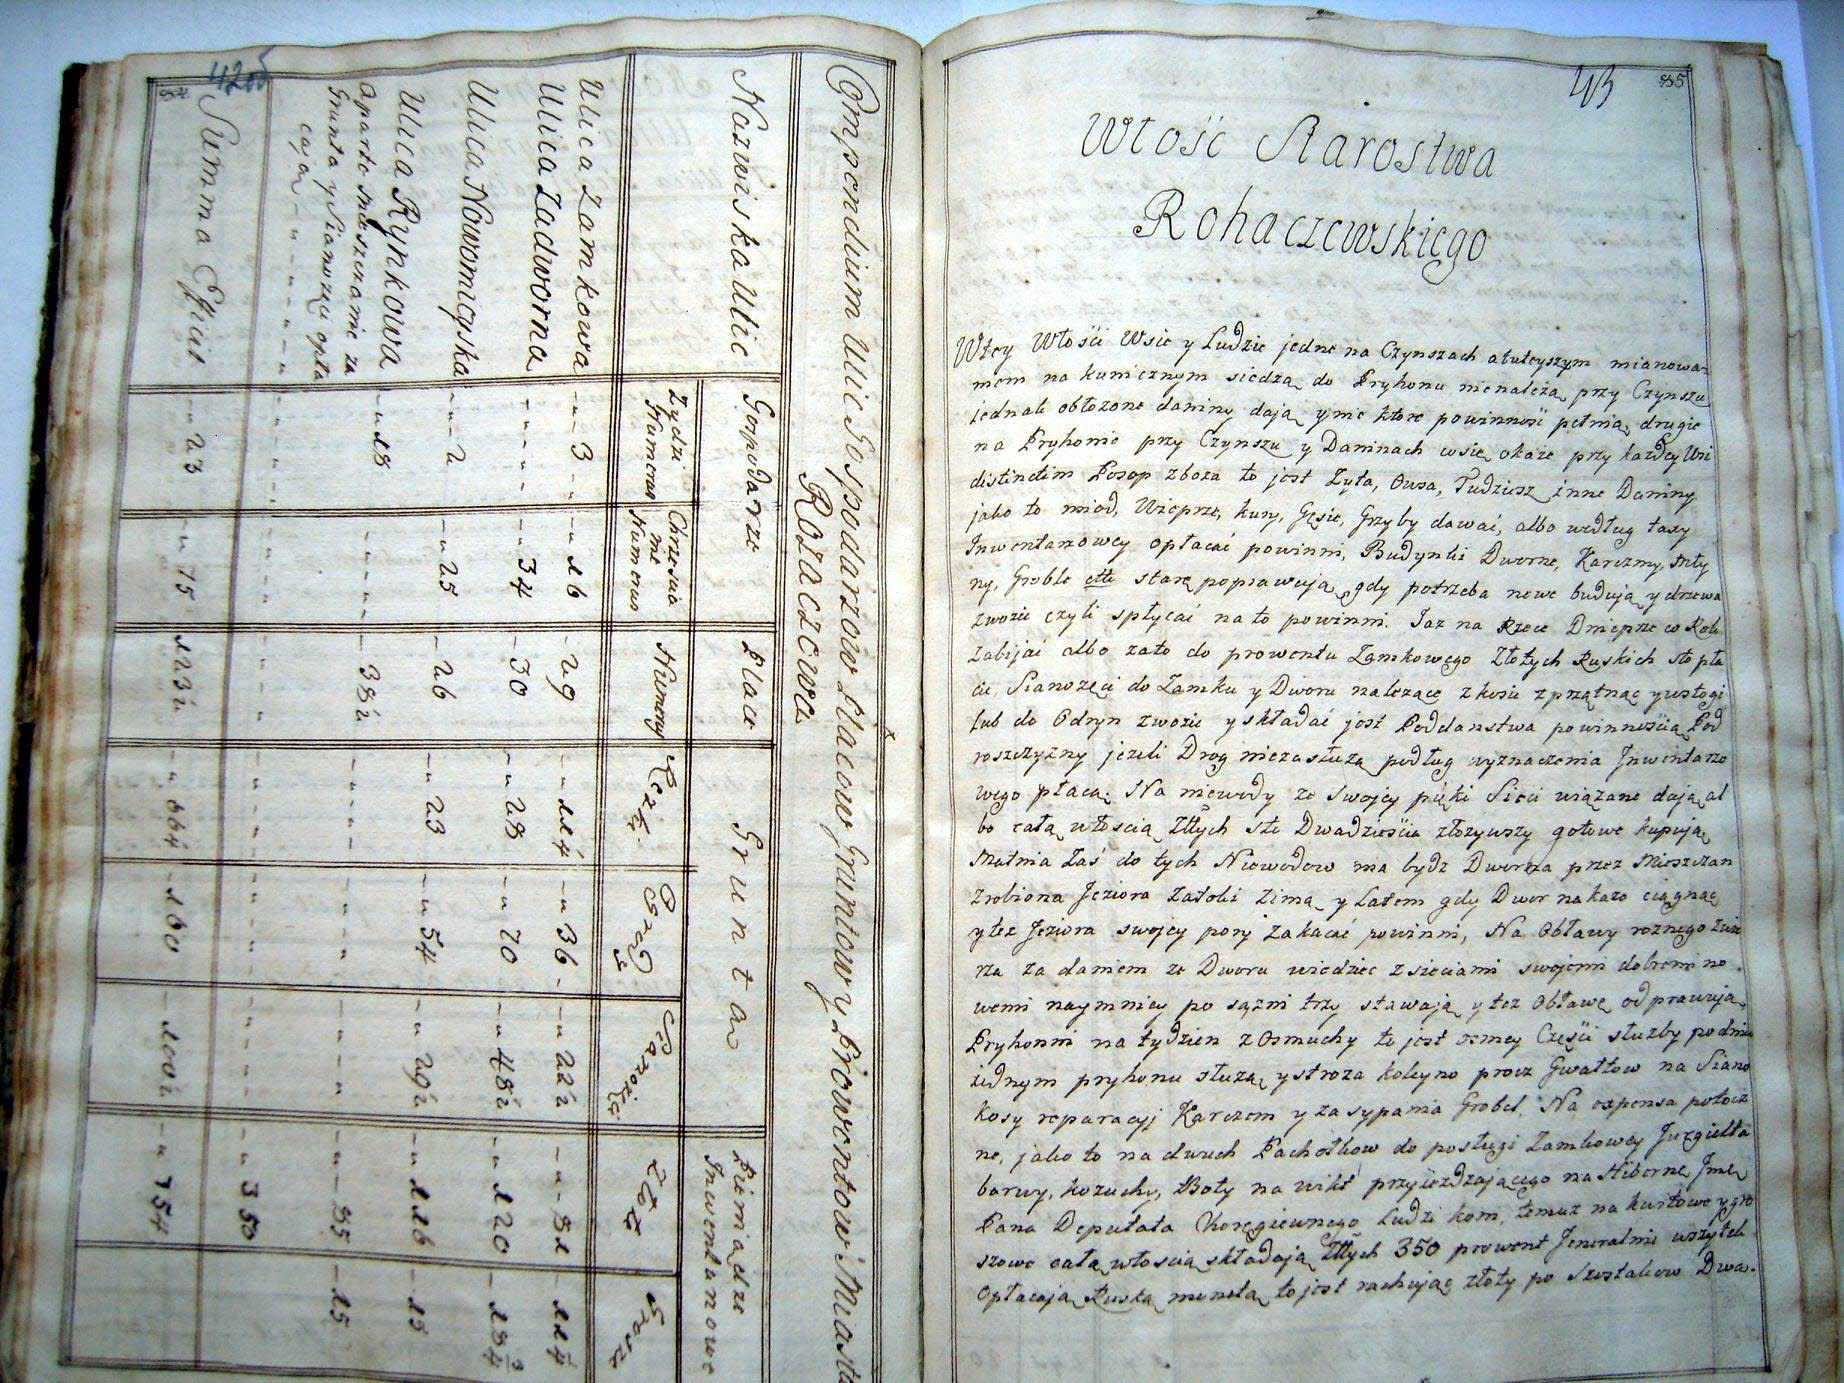 42об
Compendium Ulic Gospodarzow Placow Gruntow y Prowentow Miasta
Rohaczewa
Nazwiska Ulic
Gospodarze
Place
Grunta
Pieniądze
Inwentarzowe
Zydzi
Numerus
Chrzescia
nie
Numerus
Numery
Rezy
Ogrody
Sianożęci
Złote
Grosze
Ulica Zamkowa 3 16 29 114 36 22½ 81 11
Ulica Zadworna 34 30 28 70 48½ 120 18
Ulica Nowomieyska 2 25 26 23 54 29½ 116 15
Ulica Rynkowa 18 38½ 35 15
Oparto Mieszczanie za
Grunta y Sianozęci opła
caią 350
Summa Efficit 23 75 123½ 160 100½ 754
43
85
Włość Starostwa
Rohaczewskiego
Wtey Włości Wsie y Ludzie jedne na Czynszach atuteyszym mianowa-
niem na kunicznym siedzą do Pryhonu nienależą, przy Czynszu
jednak obłożone daniny dają ynie ktore powinności pełnią, drugie
na Pryhonie przy Czynszu y Daninach cosię okaże przy każdey Wsi
distinctim Posop zboża to jest Żyta, Owsa, Tudziesz inne Daniny
jako to miod, Wieprze, kury, Gęsie, Grzyby dawać, albo według taxy
Inwentarzowey opłacać powinni, Budynki Dworne, Karczmy, Mły
ny, Groble stare poprawują, gdy potrzeba nowe budują y drzewa
zwozic czyli spłycać na to powinni. Jaz na Rzece Dnieprze co Rok
Zabijać albo zato do prowentu Zamkowego Złotych Ruskich sto pła
cic, Sianozęci do Zamku y Dworu należące z kosic zprzątnąc y wstogi
lub do Odryn zwozic y składać jest Poddanstwa powinnością Pod
roszczyzny jezeli Drog niezasłużą podług wyznaczenia Jnwentarzo
wego płacą. Na niewody ze Swojey Sieci wiązane dają al
bo całą włością Złłych sto Dwadzieścia złozywszy gotowe kupują
Matnia Zaś do tych Niewodow ma bydz Dworna przez Mieszczan
Zrobiona Jeziora Zatoki Zimą y Latem gdy Dwor nakaze ciągnąc
y tez Jeziora swojey pory Zakacać powinni, Na Obławy roznego Zwie
rza za daniem ze Dworu wiedziec z sieciami swojemi dobremi no
wemi naymniey po sązni trzy stawają y tez Obławę odprawują
Pryhonni na tydzien z Osmuchy to jest osmey Części słuzby podniu
iednym pryhonu służą y stroza koleyno procz Gwałtow na Siano
kosy reparacyj Karczem y zasypania Grobel, Na expensa potocz
ne, jako to na dwuch Pachołkow do posługi Zamkowey Jurgielta
barwy, kozuchy, Boty na wikt przyieżdzającego na Hiberne Jme
Pana Deputata Ludzi kom, temuz na kuntowe y gro
szowe całą włoscią składają Złłych 350 prowent Jeneralnie wszytek
Opłacają Ruską monetą to jest rachując złoty po Szostakow Dwa.